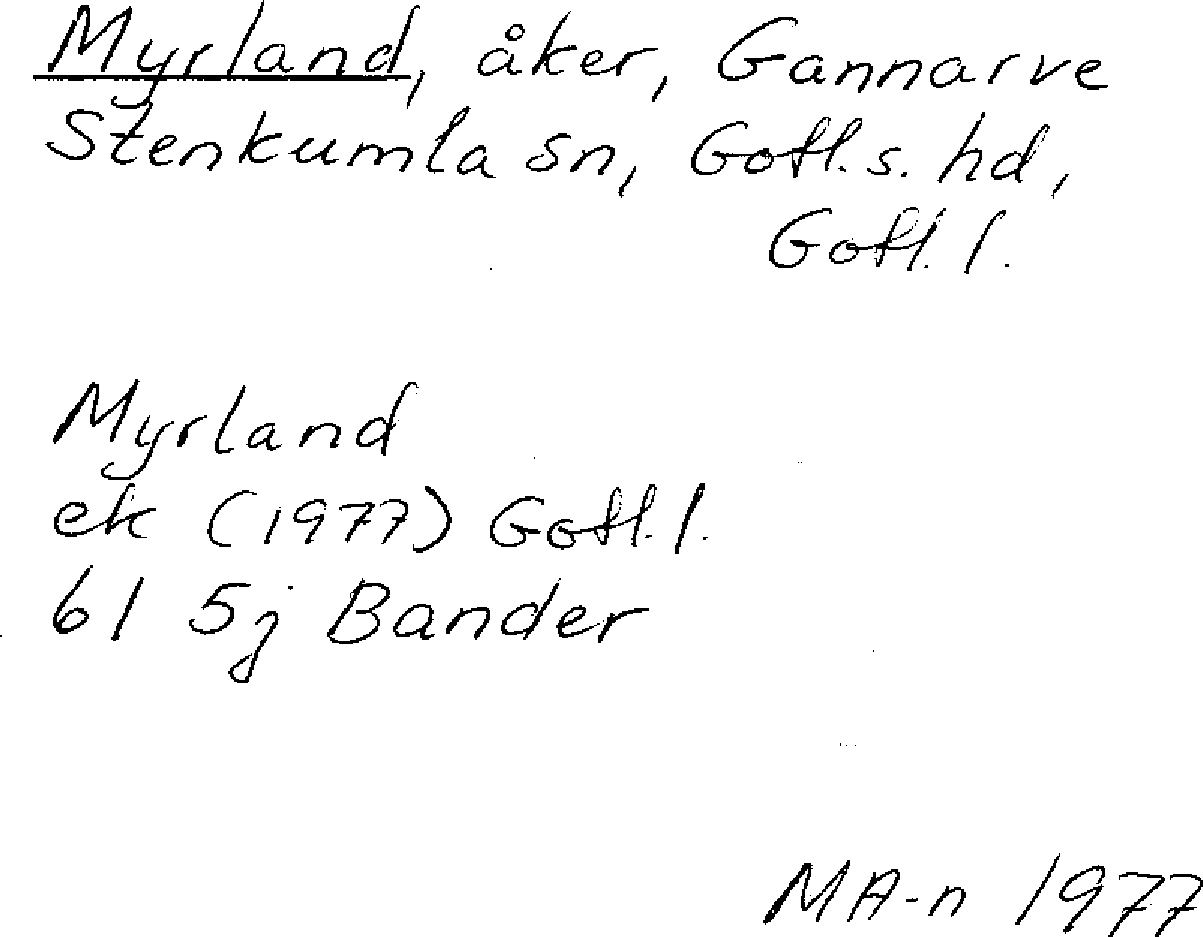 Myrland, åker, Gannarve
Stenkumla sn, Gotl. s. hd,
Gotl. l.
Myrland
ek (1977) Gotl. l.
6I 5j Bander
MA-n 1977